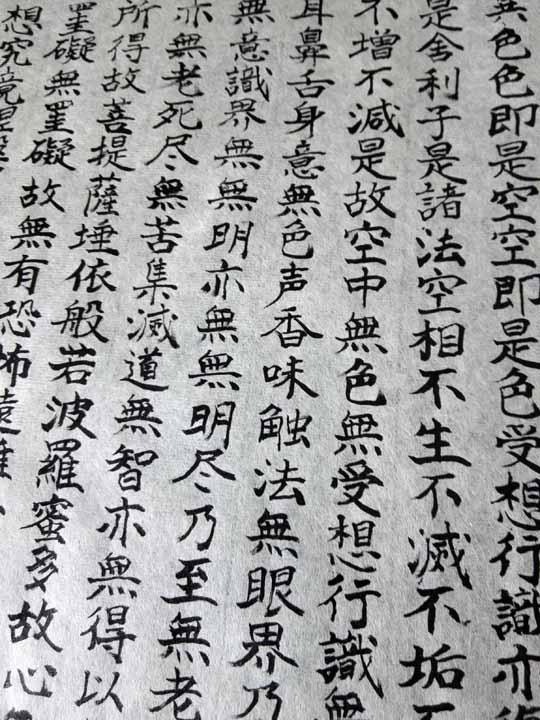 異色色即是空空即是色受想行識亦
是舍利子是諸法空相不生不滅不垢不
不増不減是故空中無色無受想行識無
耳鼻舌身意無色声香味触法無眼界乃
無意識界無無明亦無無明尽乃至無老
亦無老死尽無苦集滅道無智亦無得以
所得故菩提薩埵依般若波羅蜜多故心
罣礙無罣礙故無有恐怖遠離
想究竟涅